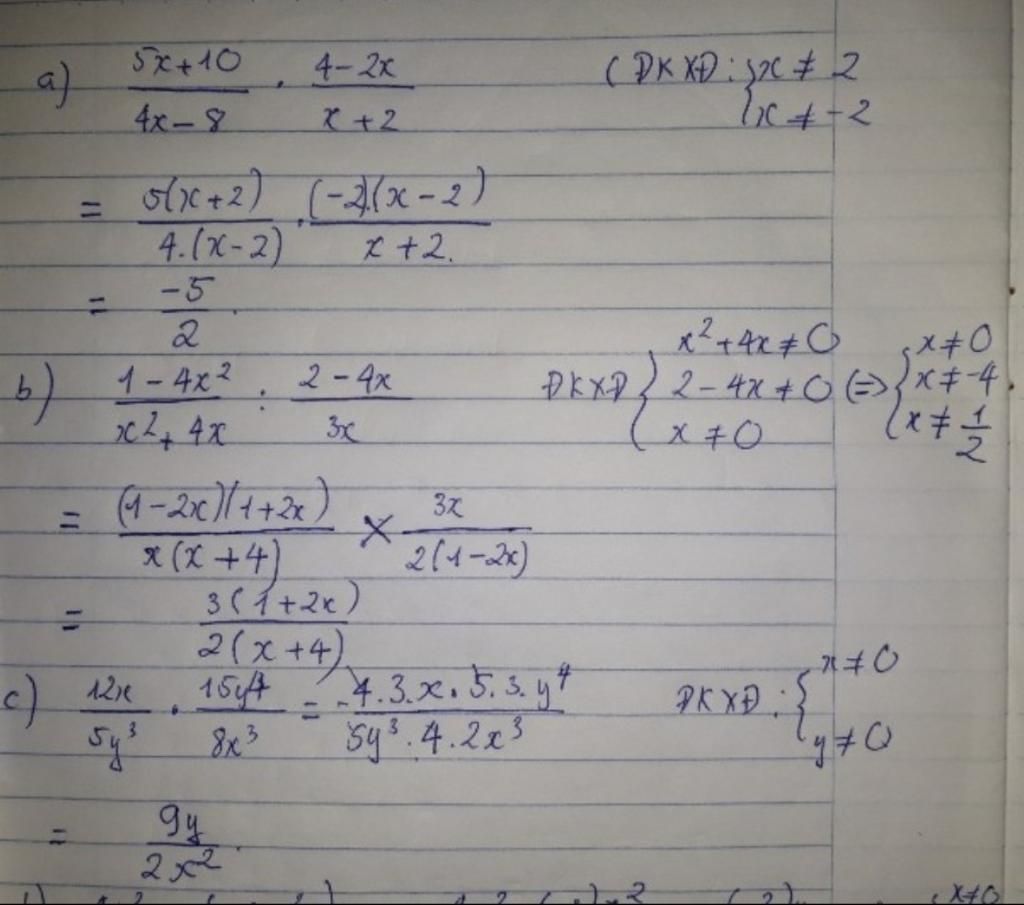 a) (5x+10)/(4x-8) . (4-2x)/(x+2) (ĐKXĐ: { x ≠ 2
x ≠ -2
= 5(x+2)/4.(x-2) . (-2).(x-2)/x+2.
= -5/2.
b) (1-4x²)/(x²+4x) : (2-4x)/3x ĐKXĐ { x²+4x ≠ 0 (=> { x ≠ 0
2-4x ≠ 0 x ≠ -4
x ≠ 0 x ≠ 1/2
= (1-2x)(1+2x)/x(x+4) × 3x/2(1-2x)
= 3(1+2x)/2(x+4)
c) 12x/5y³ . 15y⁴/8x³ = 4.3.x.5.3.y⁴/5y³.4.2x³ ĐKXĐ: { x ≠ 0
y ≠ 0
= 9y/2x².
x≠0